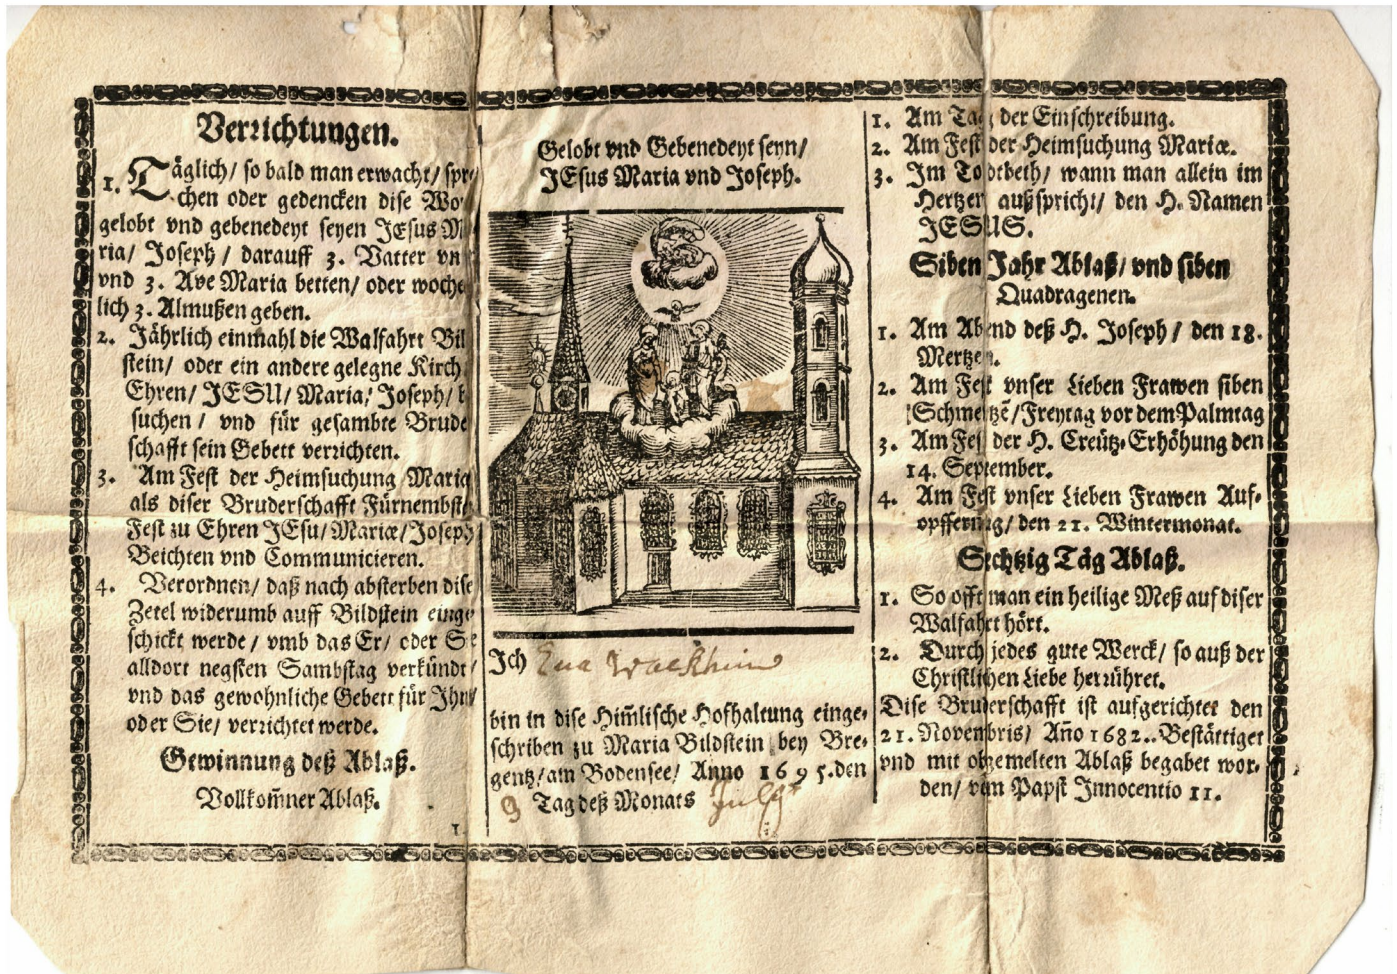 Verrichtungen.
1. Täglich/ so bald man erwacht/ spre
chen oder gedencken dise Wo
gelobt vnd gebenedeyt seyen JEsus M
ria/ Joseph/ darauff 3. Vatter vn
vnd 3. Ave Maria betten/ oder woche
lich 3. Almußen geben.
2. Jährlich einmahl die Walfahrt Bil
stein/ oder ein andere gelegne Kirch
Ehren/ JESU/ Maria/ Joseph/ b
suchen/ vnd für gesambte Brude
schafft sein Gebett verrichten.
3. Am Fest der Heimsuchung Maria
als diser Bruderschafft Fürnembste
Fest zu Ehren JEsu/ Mariæ/ Joseph
Beichten vnd Communicieren.
4. Verordnen/ daß nach absterben dise
Zetel widerumb auff Bildstein einge
schickt werde/ vmb das Er/ oder Sie
alldort negsten Sambstag verkündt/
vnd das gewohnliche Gebett für Ihn/
oder Sie/ verrichtet werde.
Gewinnung deß Ablaß.
Vollkom̃ner Ablaß.
1.
Gelobt vnd Gebenedeyt seyn/
JEsus Maria vnd Joseph.
Jch Eua
bin in dise Him̃lische Hofhaltung einge-
schriben zu Maria Bildstein bey Bre-
gentz/ am Bodensee/ Anno 1695. den
9 Tag deß Monats July
1. Am Tag der Einschreibung.
2. Am Fest der Heimsuchung Mariæ.
3. Im Todtbeth/ wann man allein im
Hertzen außspricht/ den H. Namen
JESUS.
Siben Jahr Ablaß/ vnd siben
Quadragenen.
1. Am Abend deß H. Joseph/ den 18.
Mertzen.
2. Am Fest vnser Lieben Frawen siben
Schmertzẽ/ Freytag vor dem Palmtag
3. Am Fest der H. Creütz-Erhöhung den
14. September.
4. Am Fest vnser Lieben Frawen Auf-
opfferung/ den 21. Wintermonat.
Sechtzig Täg Ablaß.
1. So offt man ein heilige Meß auf diser
Walfahrt hört.
2. Durch jedes gute Werck/ so auß der
Christlichen Liebe herrühret.
Dise Bruderschafft ist aufgerichtet den
21. Novembris/ Año 1682.. Bestättiget
vnd mit obgemelten Ablaß begabet wor-
den/ von Papst Innocentio 11.